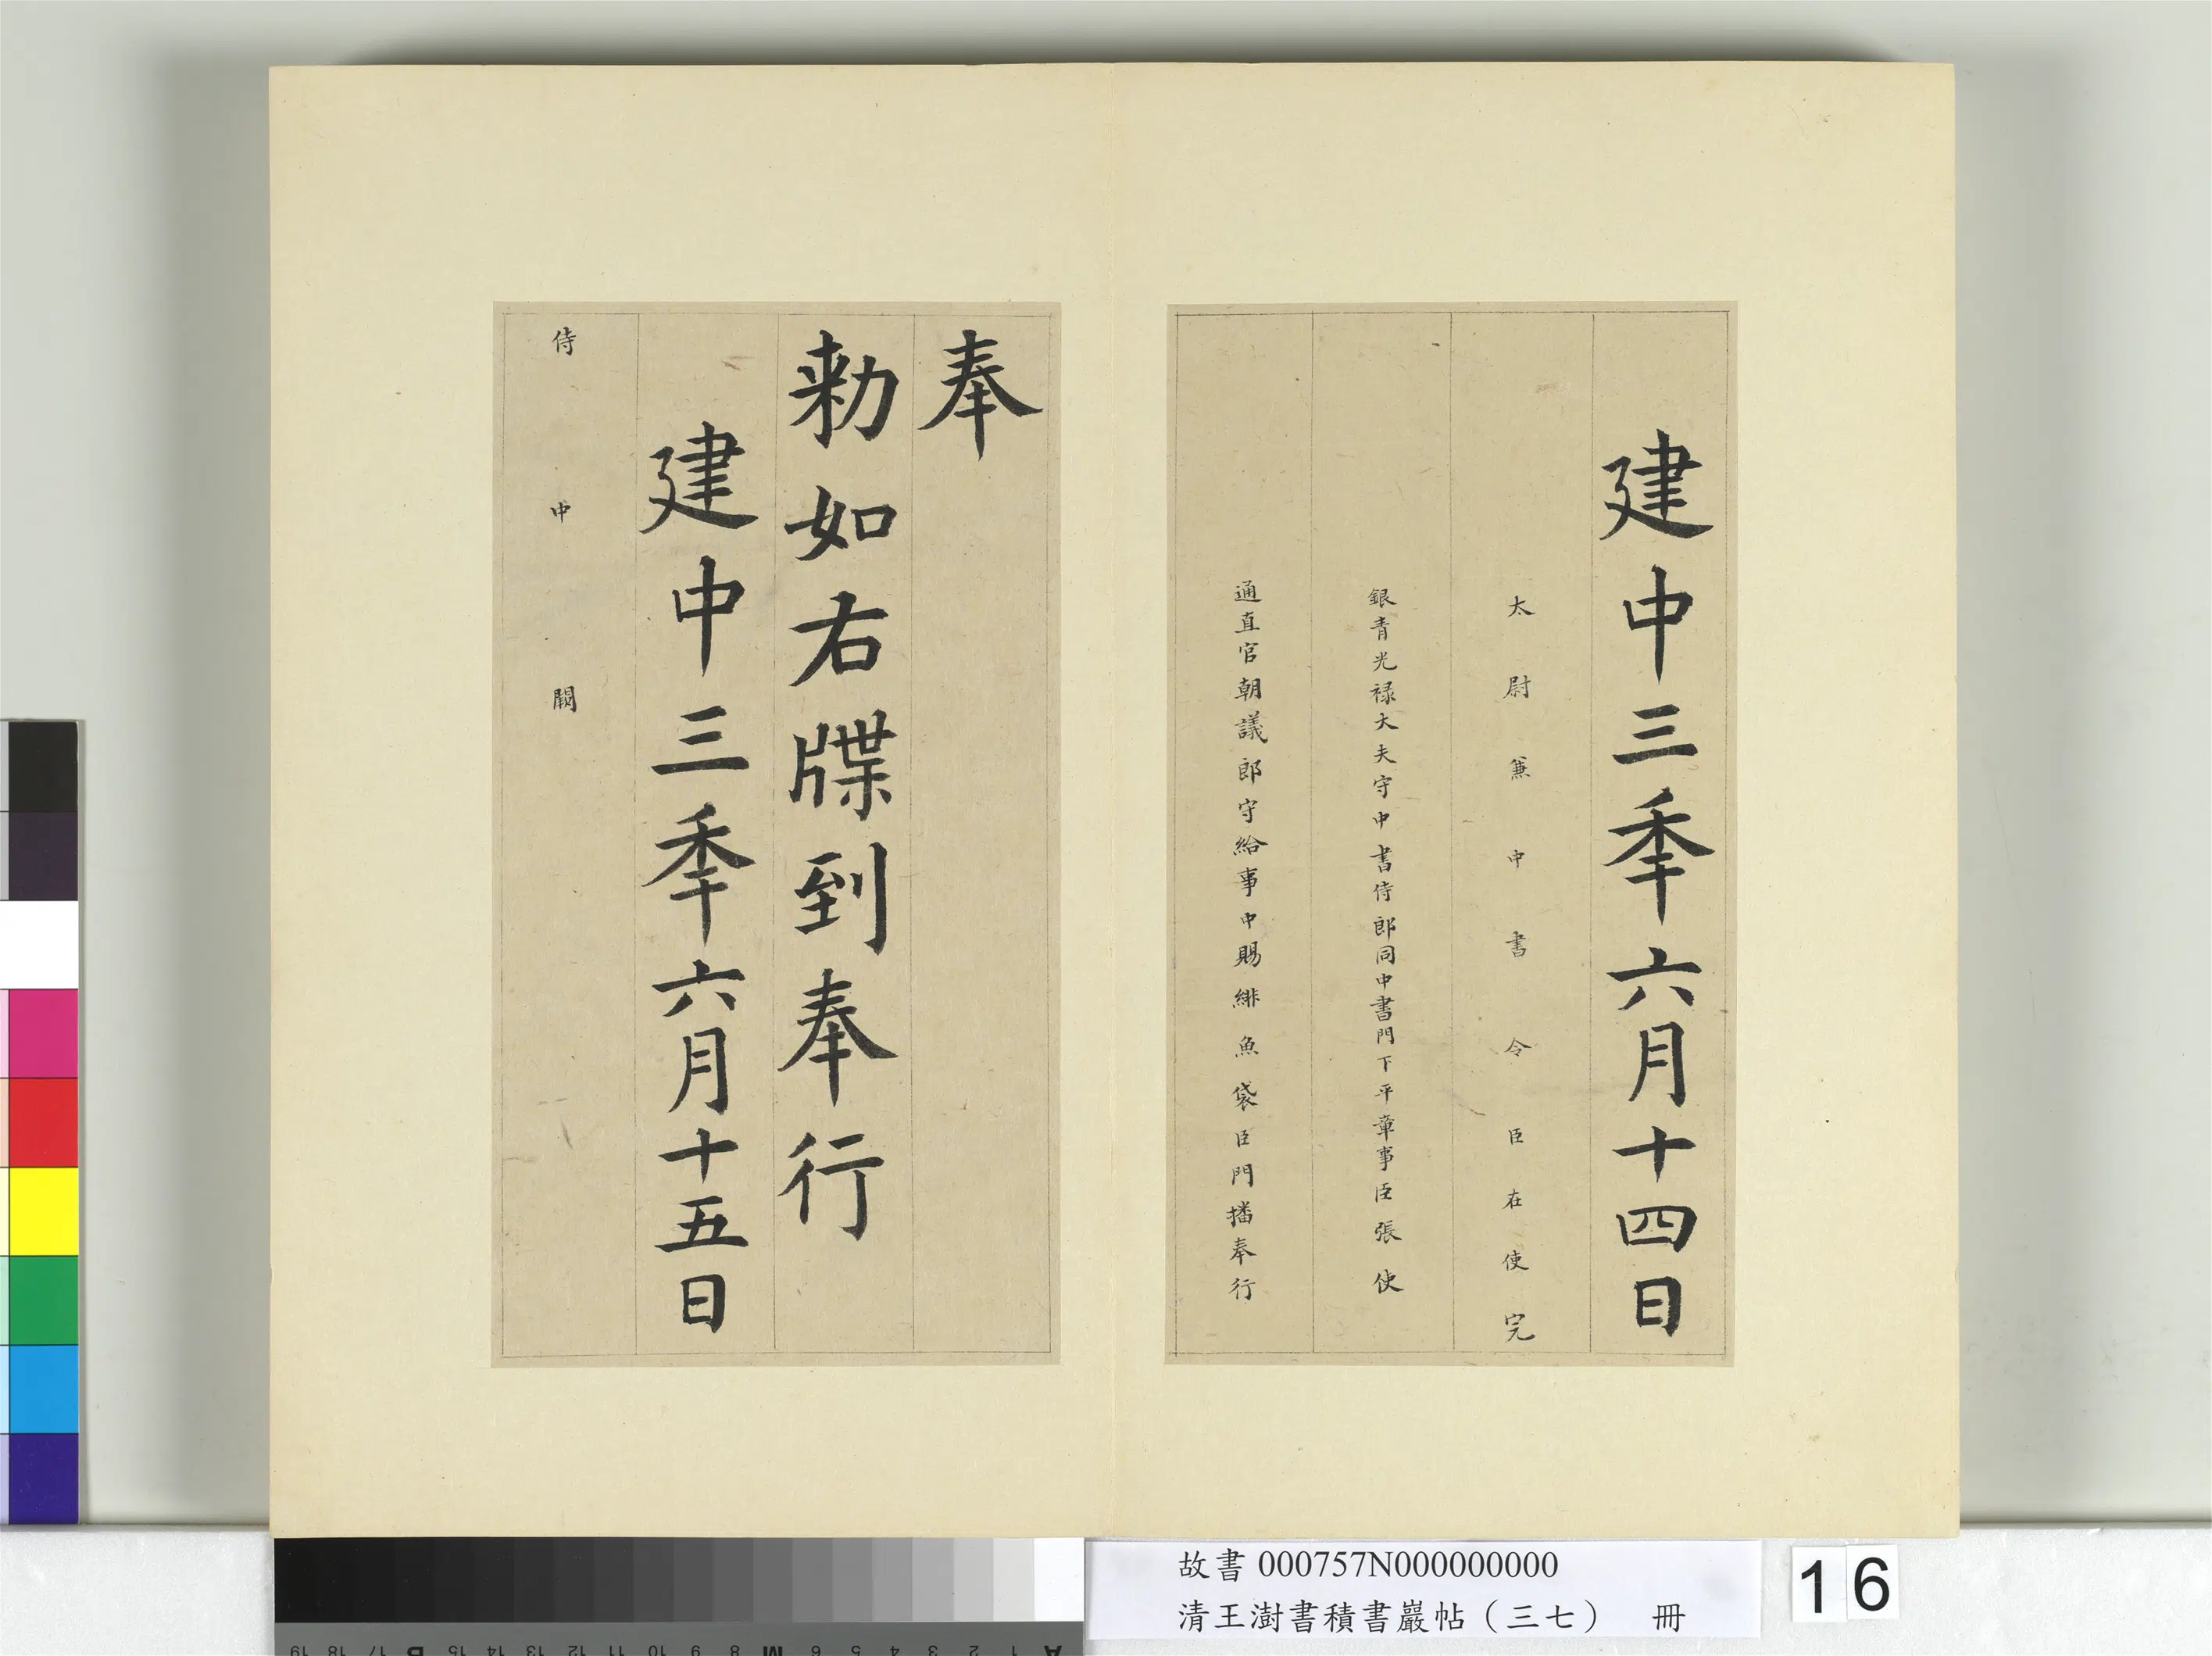 建中三秊六月十四日
太尉兼中書令臣在使完
銀青光禄大夫守中書侍郎同中書門下平章事臣張使
通直官朝議郎守給事中賜緋魚袋臣門播奉行
奉
勑如右牒到奉行
建中三秊六月十五日
侍中闕
故書 000757N000000000
清王澍書積書巖帖（三七） 冊
16
A 1 2 3 4 5 6 M 8 9 10 11 12 13 14 15 B 17 18 19